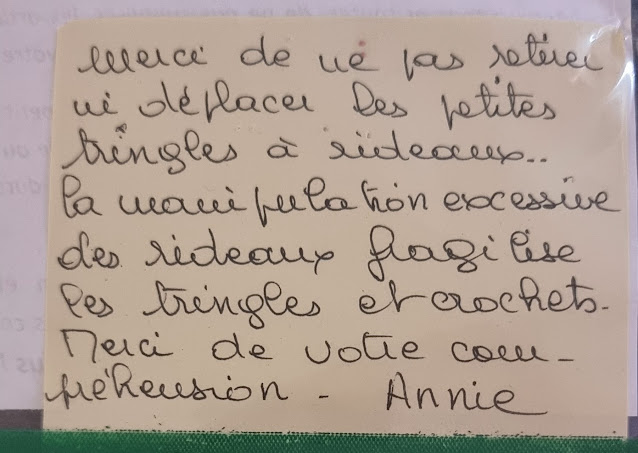 Merci de ne pas retirer
ni déplacer les petites
tringles à rideaux..
la manipulation excessive
des rideaux fragilise
les tringles et crochets.
Merci de votre com-
préhension - Annie